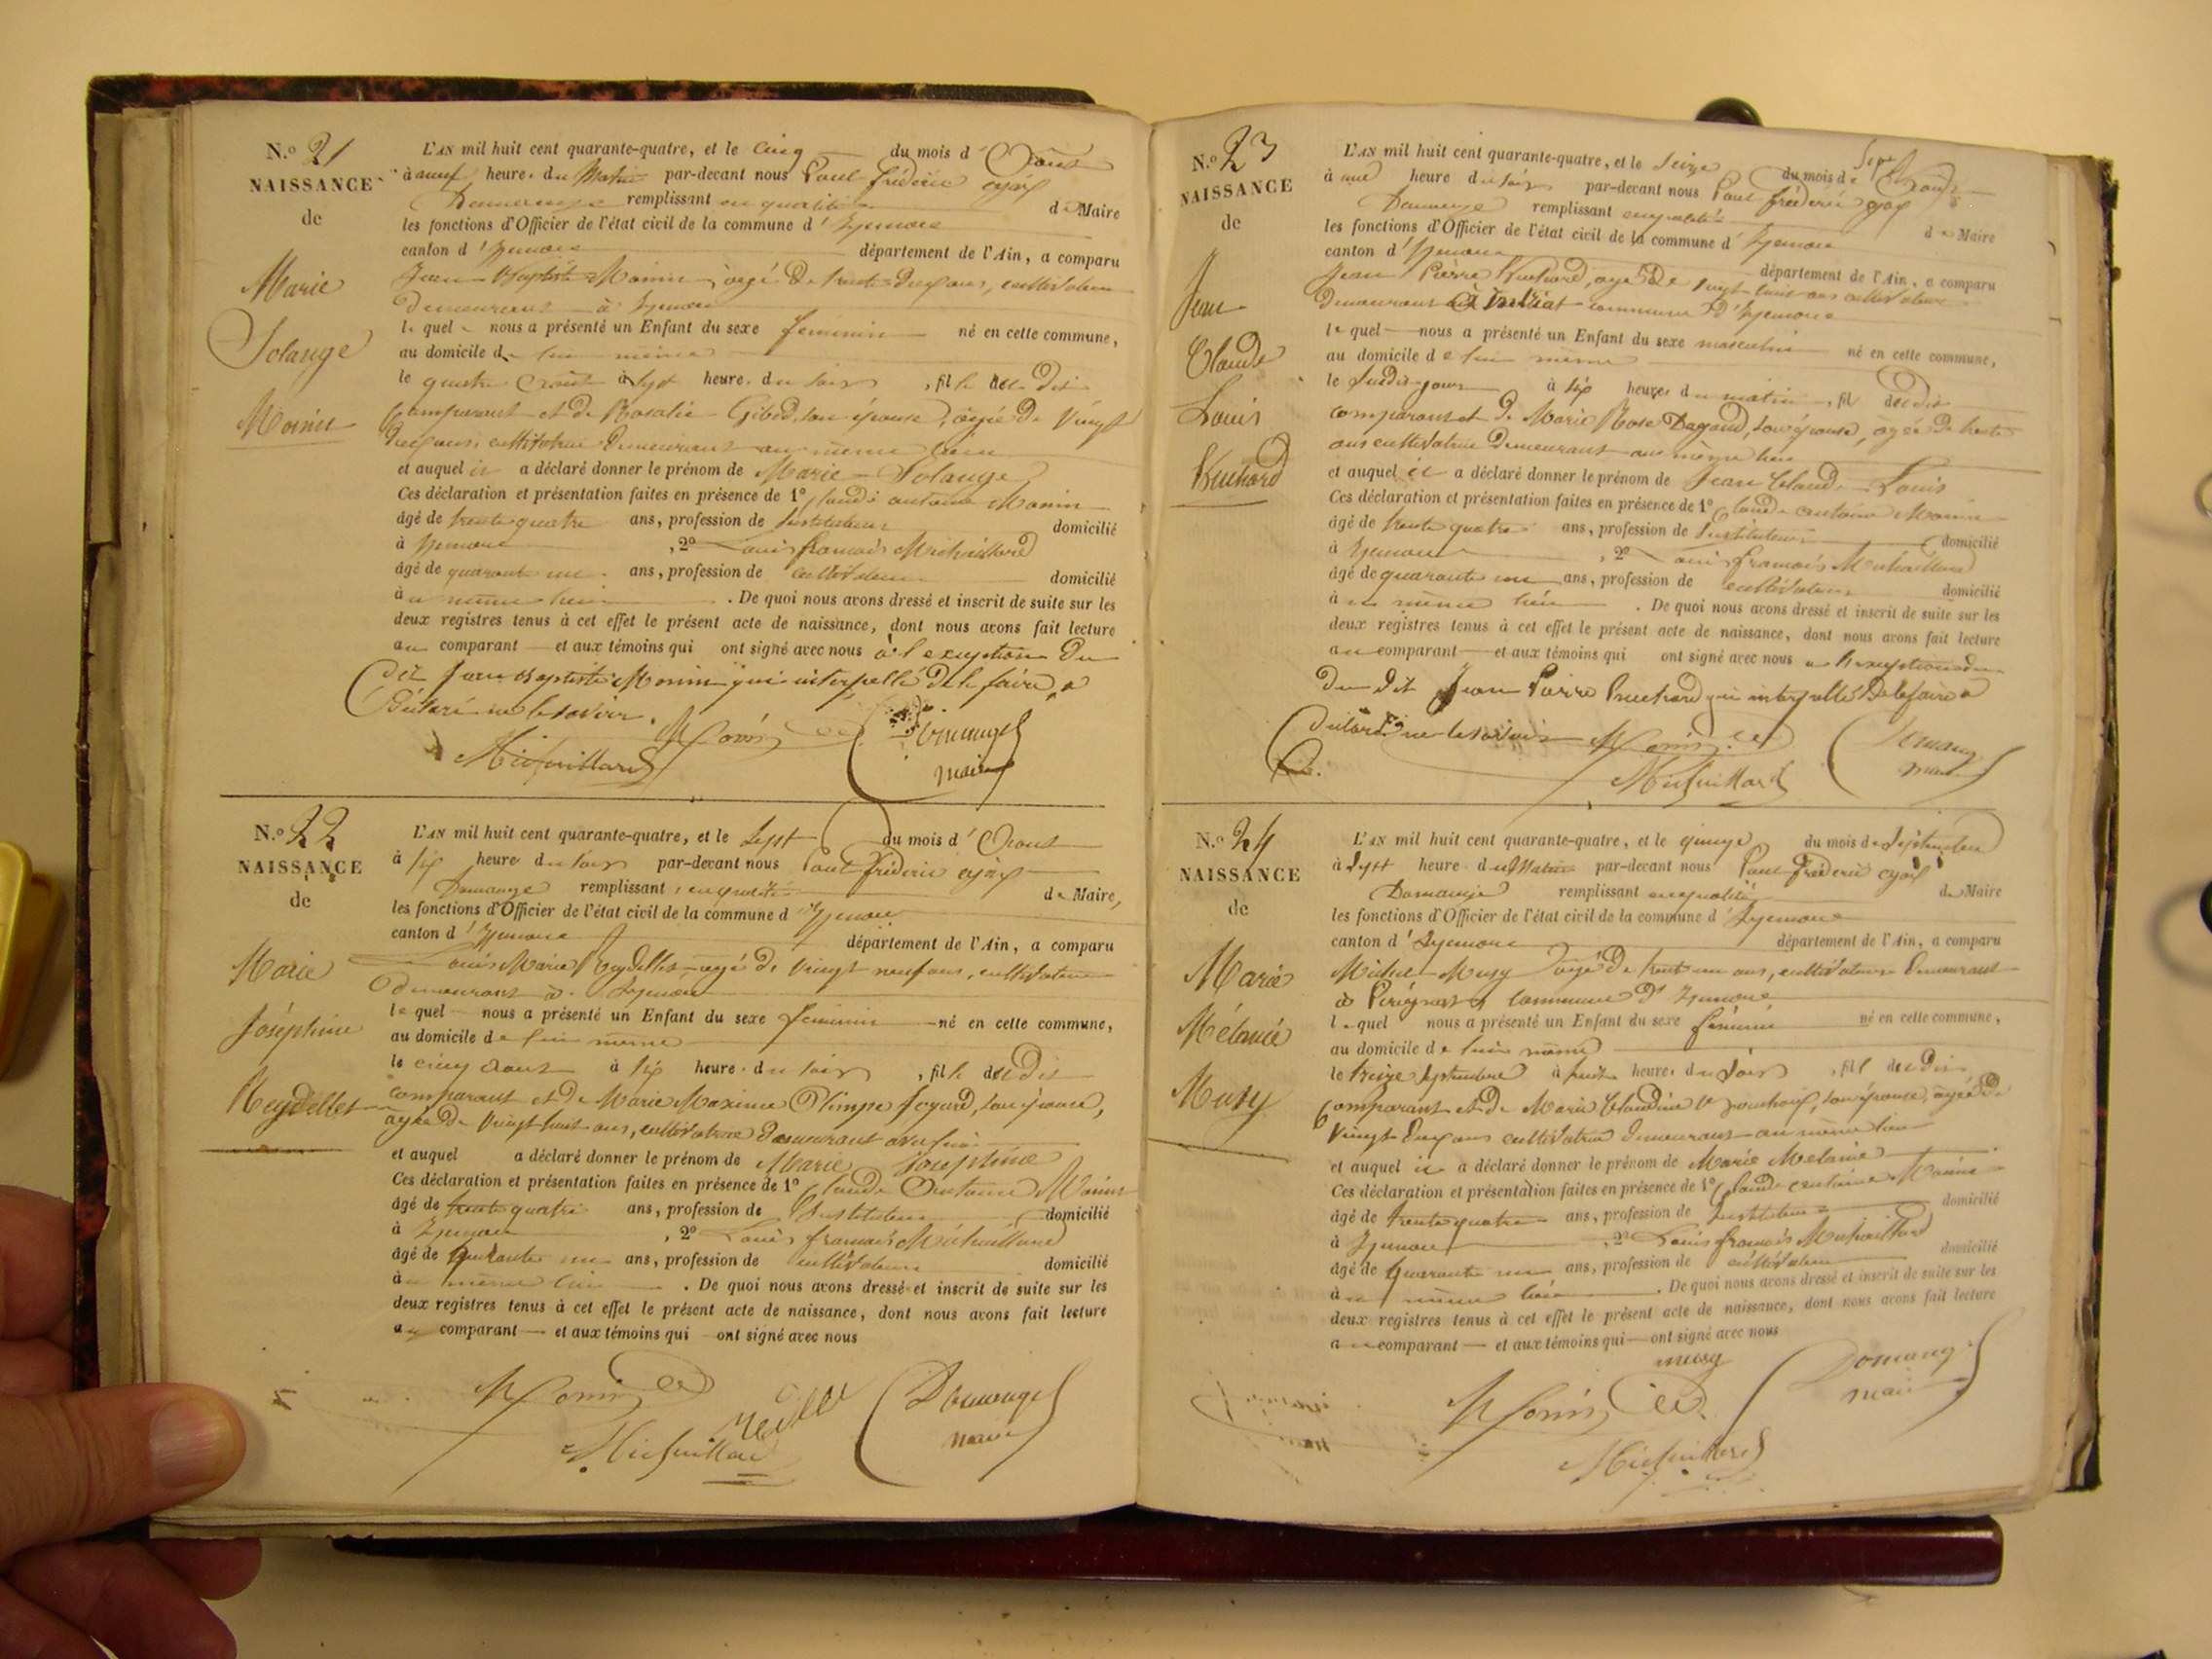 N.o 21
NAISSANCE
de
Marie
Solange
Monin
L'AN mil huit cent quarante-quatre, et le cinq du mois d' Août
à neuf heure. du Matin par-devant nous Paul frédéric
Domange remplissant en qualité de Maire
les fonctions d'Officier de l'état civil de la commune d' Izernore
canton d' Izernore département de l'Ain, a comparu
Jean Baptiste Monin, agé de trente ans, cultivateur
demeurant à Izernore
le quel nous a présenté un Enfant du sexe féminin né en cette commune,
au domicile de lui même
le quatre Août à sept heure. du soir, fille du dit
Comparant et de Rosalie Gibod, son épouse, agée de Vingt
ans, cultivatrice demeurant au même lieu
et auquel il a déclaré donner le prénom de Marie Solange
Ces déclaration et présentation faites en présence de 1o Claude antoine Monin
âgé de trente quatre ans, profession de Instituteur domicilié
à Izernore, 2o Louis françois Michaillard
âgé de quarante un ans, profession de cultivateur domicilié
au même lieu. De quoi nous avons dressé et inscrit de suite sur les
deux registres tenus à cet effet le présent acte de naissance, dont nous avons fait lecture
au comparant et aux témoins qui ont signé avec nous à l'exception du
dit Jean Baptiste Monin qui interpellé de le faire a
Déclaré ne le savoir.
Monin
Domange
Michaillard
maire
N.o 22
NAISSANCE
de
Marie
Joséphine
Reydellet
L'AN mil huit cent quarante-quatre, et le Sept du mois d' Août
à six heure du soir par-devant nous Paul frédéric
Domange remplissant en qualité de Maire,
les fonctions d'Officier de l'état civil de la commune d' Izernore
canton d' Izernore département de l'Ain, a comparu
Louis Marie Reydellet, agé de vingt neuf ans, cultivateur
demeurant à Izernore
le quel nous a présenté un Enfant du sexe féminin né en cette commune,
au domicile de lui même
le cinq Août à six heure. du soir, fille du dit
comparant et de Marie Maxime Olimpe Joyard, son épouse,
agée de Vingt huit ans, cultivatrice demeurant avec lui
et auquel a déclaré donner le prénom de Marie Joséphine
Ces déclaration et présentation faites en présence de 1o Claude Antoine Monin
âgé de trente quatre ans, profession de Instituteur domicilié
à Izernore, 2o Louis françois Michaillard
âgé de quarante un ans, profession de cultivateur domicilié
au même lieu. De quoi nous avons dressé et inscrit de suite sur les
deux registres tenus à cet effet le présent acte de naissance, dont nous avons fait lecture
au comparant et aux témoins qui ont signé avec nous
Monin
Domange
Michaillard
maire
N.o 23
NAISSANCE
de
Jean
Claude
Louis
L'AN mil huit cent quarante-quatre, et le Seize du mois de Août
à une heure du soir par-devant nous Paul frédéric
Domange remplissant en qualité de Maire
les fonctions d'Officier de l'état civil de la commune d' Izernore
canton d' Izernore département de l'Ain, a comparu
Jean Pierre, agé de vingt huit ans cultivateur
demeurant à Intriat commune d'Izernore
le quel nous a présenté un Enfant du sexe masculin né en cette commune,
au domicile de lui même
le susdit jour à six heures du matin, fil du dit
comparant et de Marie Rose Dagaud, son épouse, agée de trente
ans cultivatrice demeurant au même lieu
et auquel il a déclaré donner le prénom de Jean Claude Louis
Ces déclaration et présentation faites en présence de 1o Claude antoine Monin
âgé de trente quatre ans, profession de Instituteur domicilié
à Izernore, 2o Louis françois Michaillard
âgé de quarante un ans, profession de cultivateur domicilié
au même lieu. De quoi nous avons dressé et inscrit de suite sur les
deux registres tenus à cet effet le présent acte de naissance, dont nous avons fait lecture
au comparant et aux témoins qui ont signé avec nous à l'exception du
du dit Jean Pierre qui interpellé de le faire a
déclaré ne le savoir
Monin
Domange
Michaillard
maire
N.o 24
NAISSANCE
de
Marie
Mélanie
Musy
L'AN mil huit cent quarante-quatre, et le quinze du mois de Septembre
à Sept heure du Matin par-devant nous Paul Frédéric
Domange remplissant en qualité de Maire
les fonctions d'Officier de l'état civil de la commune d' Izernore
canton d' Izernore département de l'Ain, a comparu
Michel Musy agé de trente un ans, cultivateur demeurant
à Perignat, commune d' Izernore
le quel nous a présenté un Enfant du sexe féminin né en cette commune,
au domicile de lui même
le treize Septembre à huit heure. du Soir, fille du dit
Comparant et de Marie Claudine, son épouse, agée de
Vingt ans cultivatrice demeurant au même lieu
et auquel il a déclaré donner le prénom de Marie Mélanie
Ces déclaration et présentation faites en présence de 1o Claude antoine Monin
âgé de trente quatre ans, profession de Instituteur domicilié
à Izernore, 2o Louis françois Michaillard
âgé de quarante un ans, profession de cultivateur domicilié
au même lieu. De quoi nous avons dressé et inscrit de suite sur les
deux registres tenus à cet effet le présent acte de naissance, dont nous avons fait lecture
au comparant et aux témoins qui ont signé avec nous
musy
Monin
Domange
maire
Michaillard